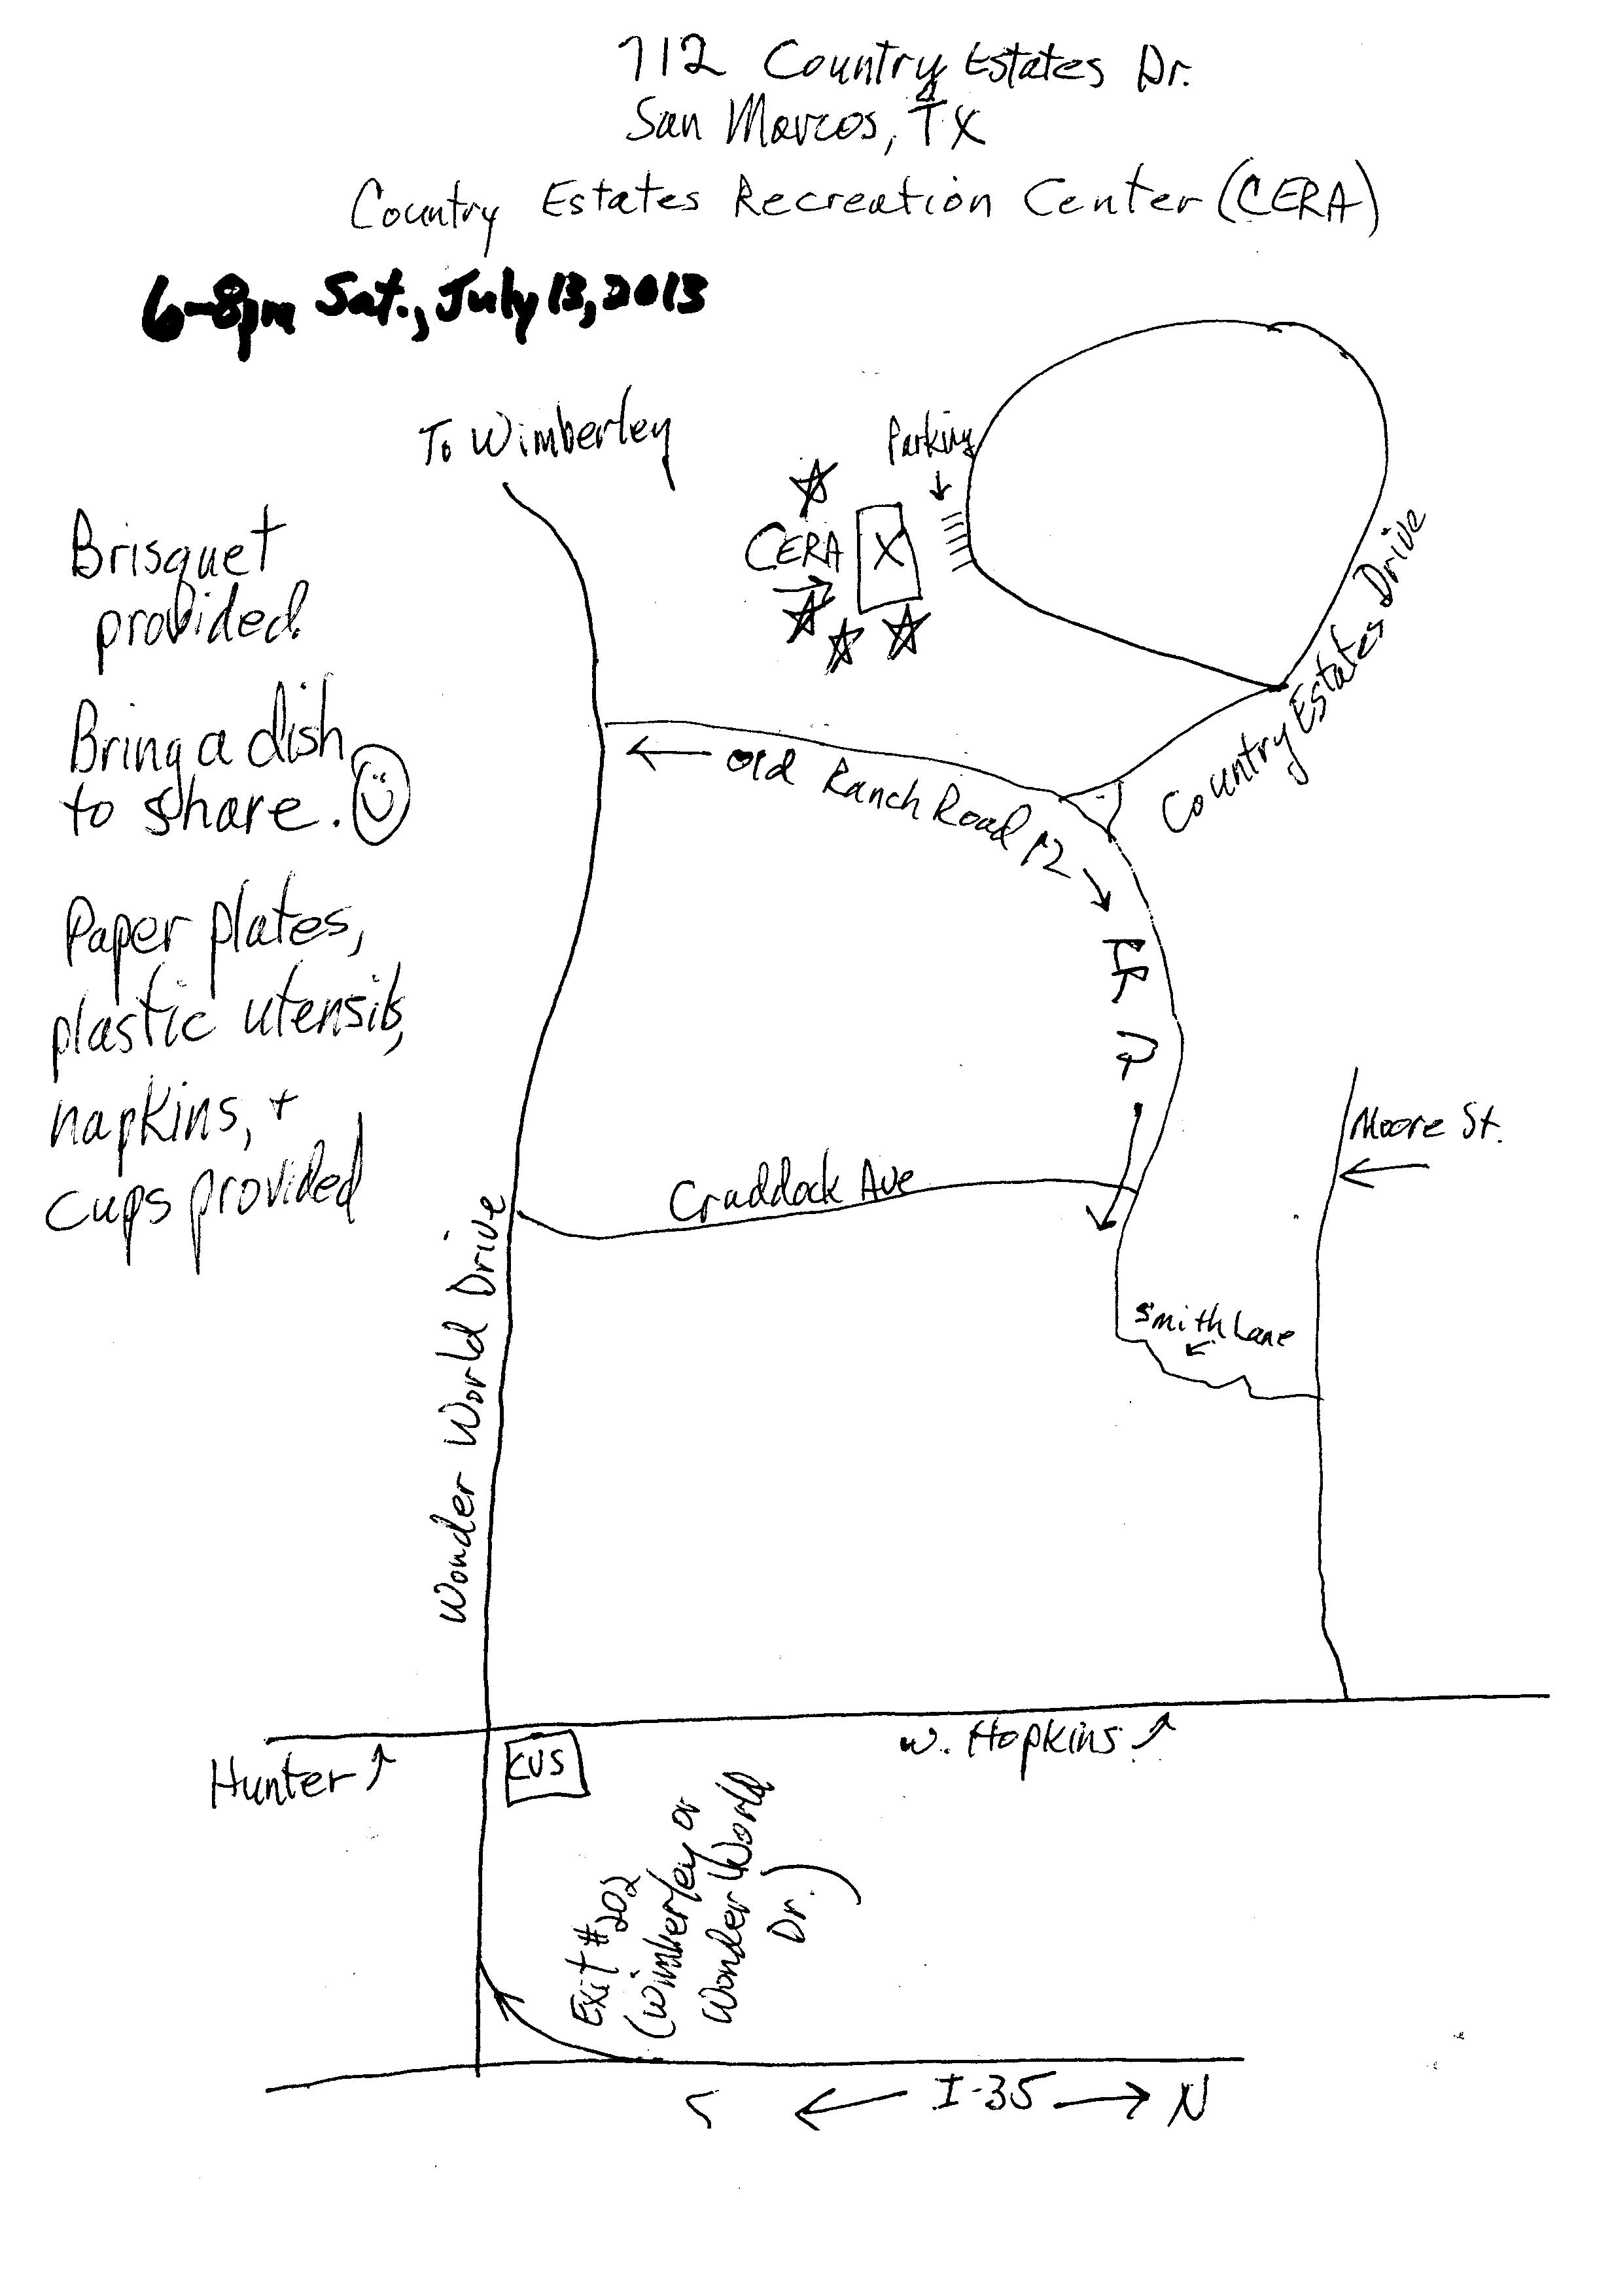 712 Country Estates Dr.
San Marcos, TX
Country Estates Recreation Center (CERA)
6-8pm Sat., July 13, 2013
To Wimberley
Parking
CERA
X
Brisquet
provided.
Bring a dish
to share.
Paper plates,
plastic utensils,
napkins, +
cups provided
Country Estates Drive
Old Ranch Road 12
RR
12
Moore St.
Craddock Ave
Smith Lane
Wonder World Drive
Hunter
CVS
W. Hopkins
Exit #202
(Wimberley or
Wonder World
Dr.)
S
I-35
N